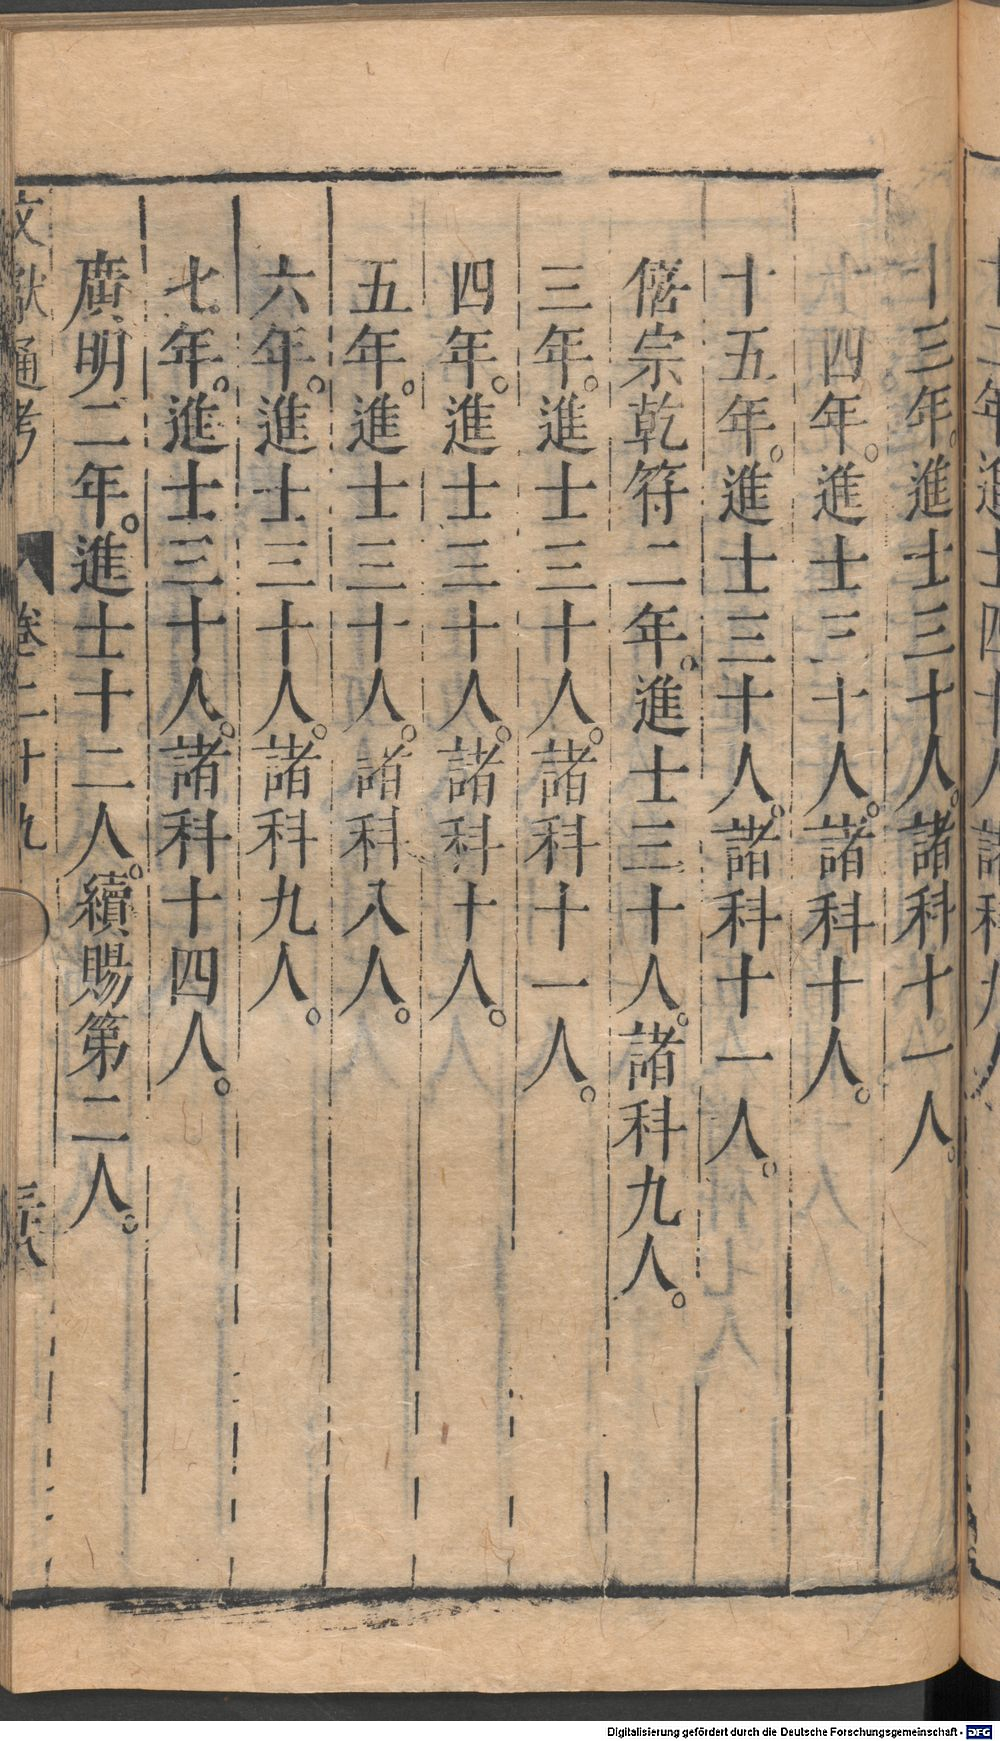 十三年。進士三十人。諸科十一人。
十四年。進士三十人。諸科十人。
十五年。進士三十人。諸科十一人。
僖宗乾符二年。進士三十人。諸科九人。
三年。進士三十人。諸科十一人。
四年。進士三十人。諸科十人。
五年。進士三十人。諸科八人。
六年。進士三十人。諸科九人。
七年。進士三十人。諸科十四人。
廣明二年。進士十二人。續賜第二人。
文獻通考 卷二十九
Digitalisierung gefördert durch die Deutsche Forschungsgemeinschaft - DFG